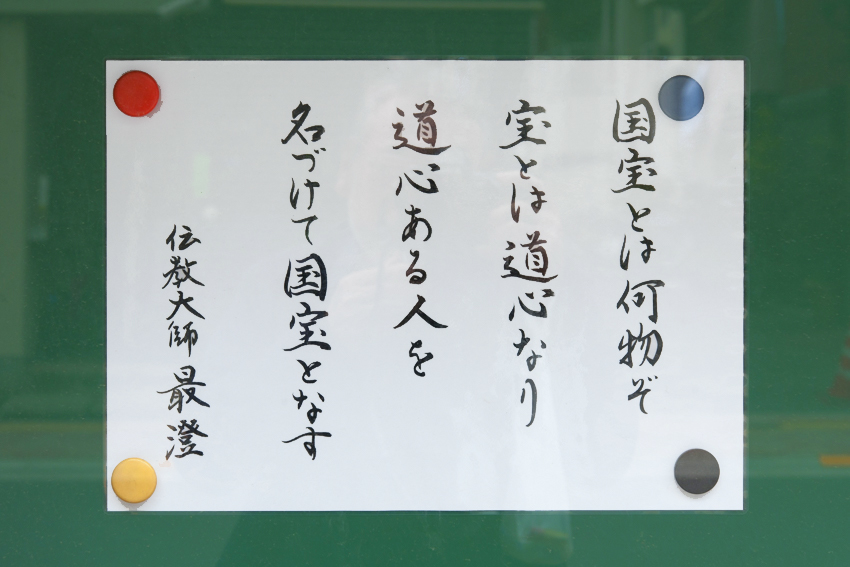 国宝とは何物ぞ
宝とは道心なり
道心ある人を
名づけて国宝となす
伝教大師 最澄